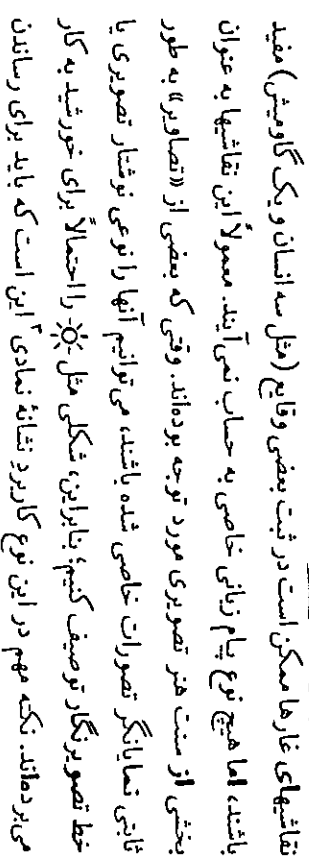 نقاشیهای غارها ممکن است در ثبت بعضی وقایع (مثل سه انسان و یک گاومیش) مفید
باشند، اما هیچ نوع پیام زبانی خاصی به حساب نمی‌آیند. معمولاً این نقاشیها به عنوان
بخشی از سنت هنر تصویری مورد توجه بوده‌اند. وقتی که بعضی از «تصاویر» به طور
ثابتی نمایانگر تصورات خاصی شده باشند، می‌توانیم آنها را نوعی نوشتار تصویری یا
خط تصویرنگار توصیف کنیم؛ بنابراین، شکلی مثل ☼ را احتمالاً برای خورشید به کار
می‌برده‌اند. نکته مهم در این نوع کاربردِ نشانهٔ نمادی۲ این است که باید برای رساندن